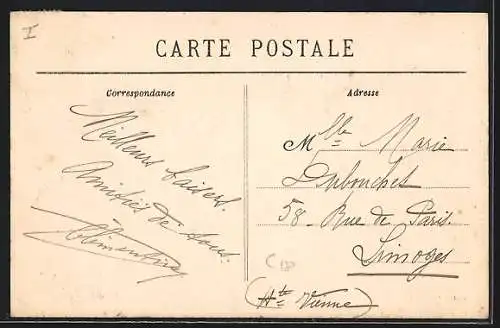 I
CARTE POSTALE
Correspondance
Meilleurs baisers.
Amitiés de tous.
Clémentine
Adresse
Mlle Marie
Dubouchet
58 Rue de Paris.
Limoges
(Hte Vienne)